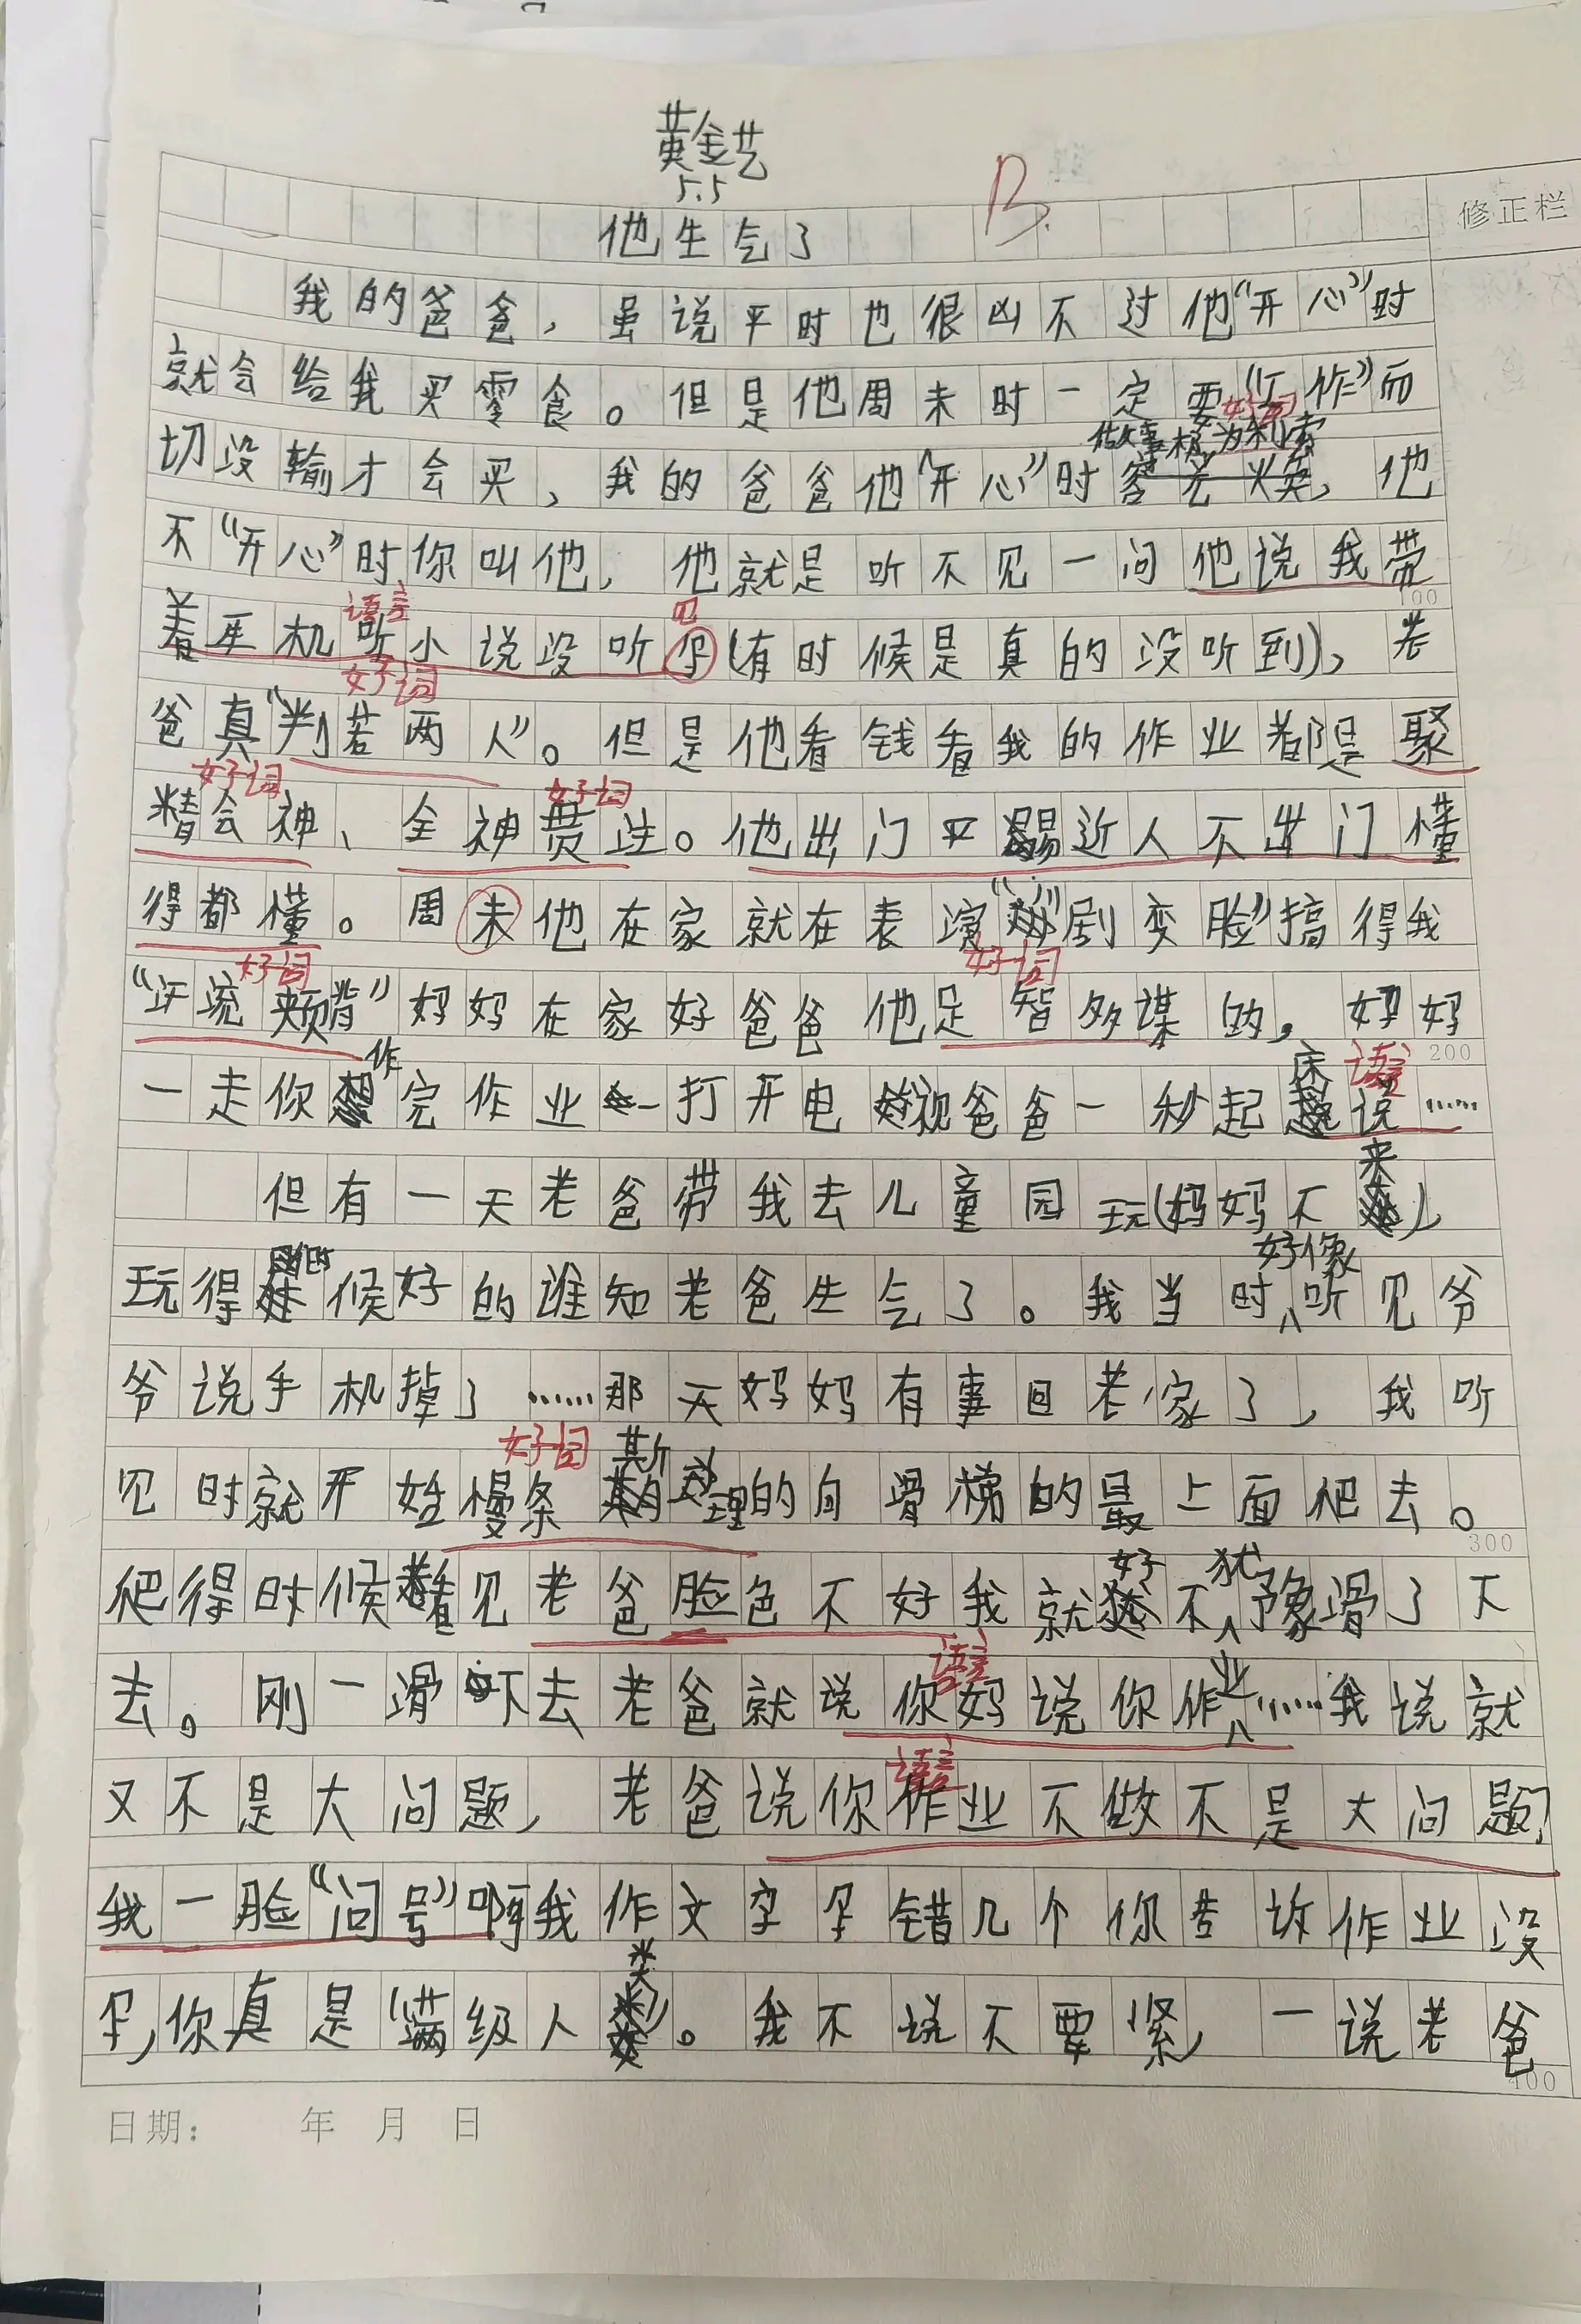 黄金艺
5.5
B.
修正栏
他生气了
我的爸爸，虽说平时也很凶不过他“开心”时
就会给我买零食。但是他周末时一定要“工作”而
好词
做事极为利索
切没输才会买，我的爸爸他“开心”时，他
不“开心”时你叫他，他就是听不见一问他说我带
100
语言
见
着耳机听小说没听(有时候是真的没听到)，老
好词
爸真“判若两人”。但是他看钱看我的作业都是聚
好词
好词
精会神、全神贯注。他出门平易近人不出门懂
得都懂。周未他在家就在表演“剧变脸”搞得我
好词
好词
“汗流颊背”妈妈在家好爸爸他足智多谋的，妈妈
200
作
床
语言
一走你完作业一打开电视爸爸一秒起说……
来
但有一天老爸带我去儿童园玩(妈妈不)，
好像
玩得候好的谁知老爸生气了。我当时听见爷
爷说手机掉了……那天妈妈有事回老家了，我听
好词
斯
见时就开始慢条理的向滑梯的最上面爬去。
300
好
犹
爬得时候看见老爸脸色不好我就不豫滑了下
语言
业
去。刚一滑下去老爸就说你妈说你作……我说就
语言
又不是大问题，老爸说你作业不做不是大问题？
我一脸“问号”啊我作文字错几个你告诉作业没
类
，你真是“满级人”。我不说不要紧，一说老爸
400
日期： 年 月 日